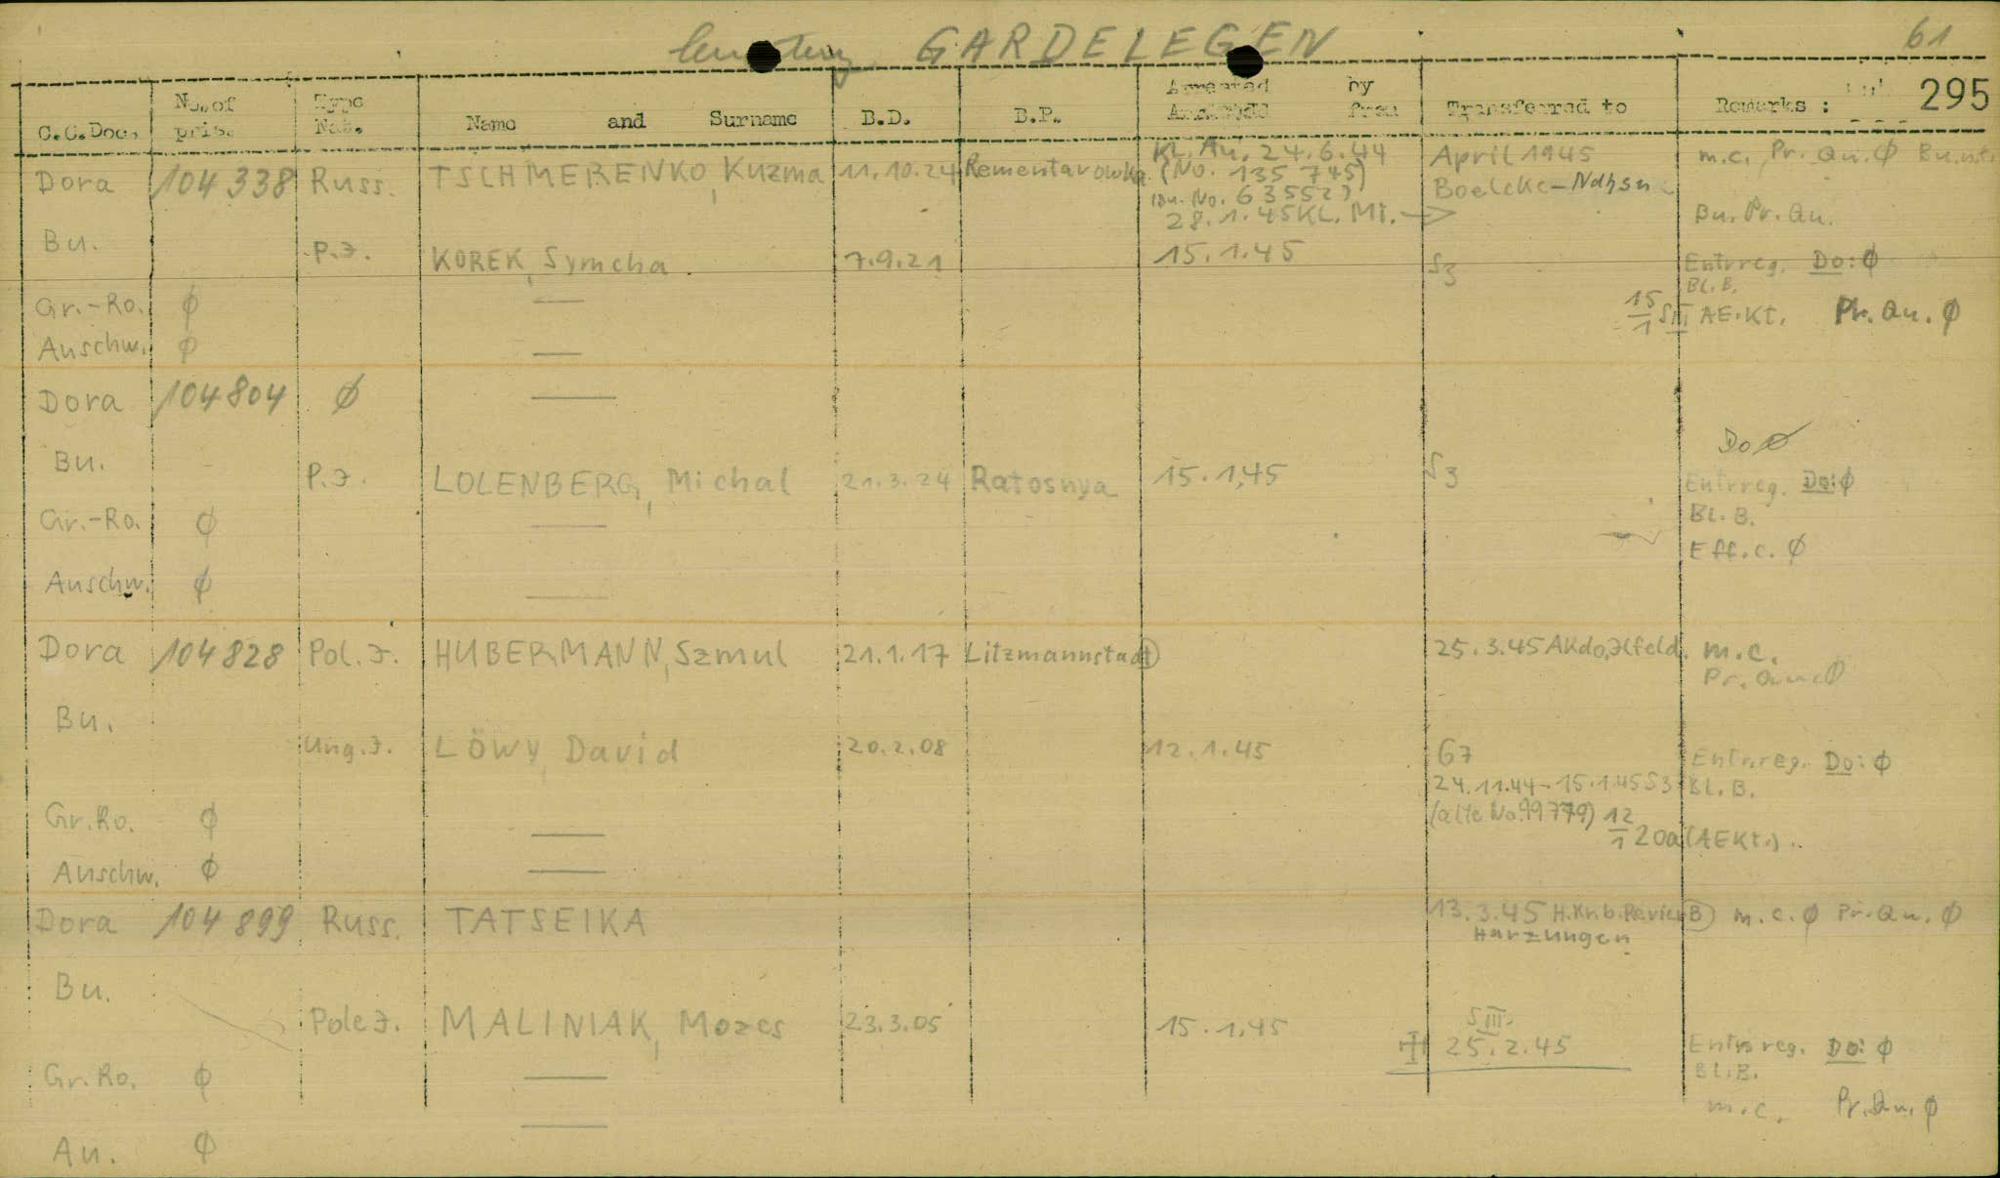 Cemetery GARDELEGEN 61
295
C.C.Doc. No. of pris. Type Nat. Name and Surname B.D. B.P. Arrested by from Transferred to Remarks :
Dora 104338 Russ. TSCHMERENKO, Kuzma 11.10.24 Rementarowka KL. Au. 24.6.44 April 1945 m.c., Pr. Qu. Ø
(No. 135 745) Boelcke-Ndhsn
Bu. No. 63552)
28.1.45 KL. Mi. → Bu. Pr. Qu.
Bu. P.J. KOREK, Symcha 7.9.21 15.1.45 S3 Entrreg. Do: Ø
Bl. B.
Gr.-Ro. Ø — 15/1 SIII AE.Kt. Pr. Qu. Ø
Auschw. Ø —
Dora 104804 Ø —
Do Ø
Bu. P.J. LOLENBERG, Michal 21.3.24 Ratosnya 15.1,45 S3 Entrreg. Do: Ø
Gr.-Ro. Ø — Bl. B.
Eff. c. Ø
Auschw. Ø —
Dora 104828 Pol. J. HUBERMANN, Szmul 21.1.17 Litzmannstadt 25.3.45 AKdo, Jlfeld. m.c.
Pr. Qu. Ø
Bu. Ung. J. LÖWY, David 20.2.08 12.1.45 67 Entrreg. Do: Ø
24.11.44-15.1.45 S3 Bl. B.
Gr. Ro. Ø — (alte No. 99779) 12/1 20a (AEKt.)
Auschw. Ø —
Dora 104899 Russ. TATSEIKA 13.3.45 H.Kr.b. Revier B m.c. Ø Pr. Qu. Ø
Harzungen
Bu. Pole J. MALINIAK, Mozes 23.3.05 15.1.45 SIII
25.2.45 Entrreg. Do: Ø
Bl. B.
Gr. Ro. Ø — m.c. Pr. Qu. Ø
Au. Ø —